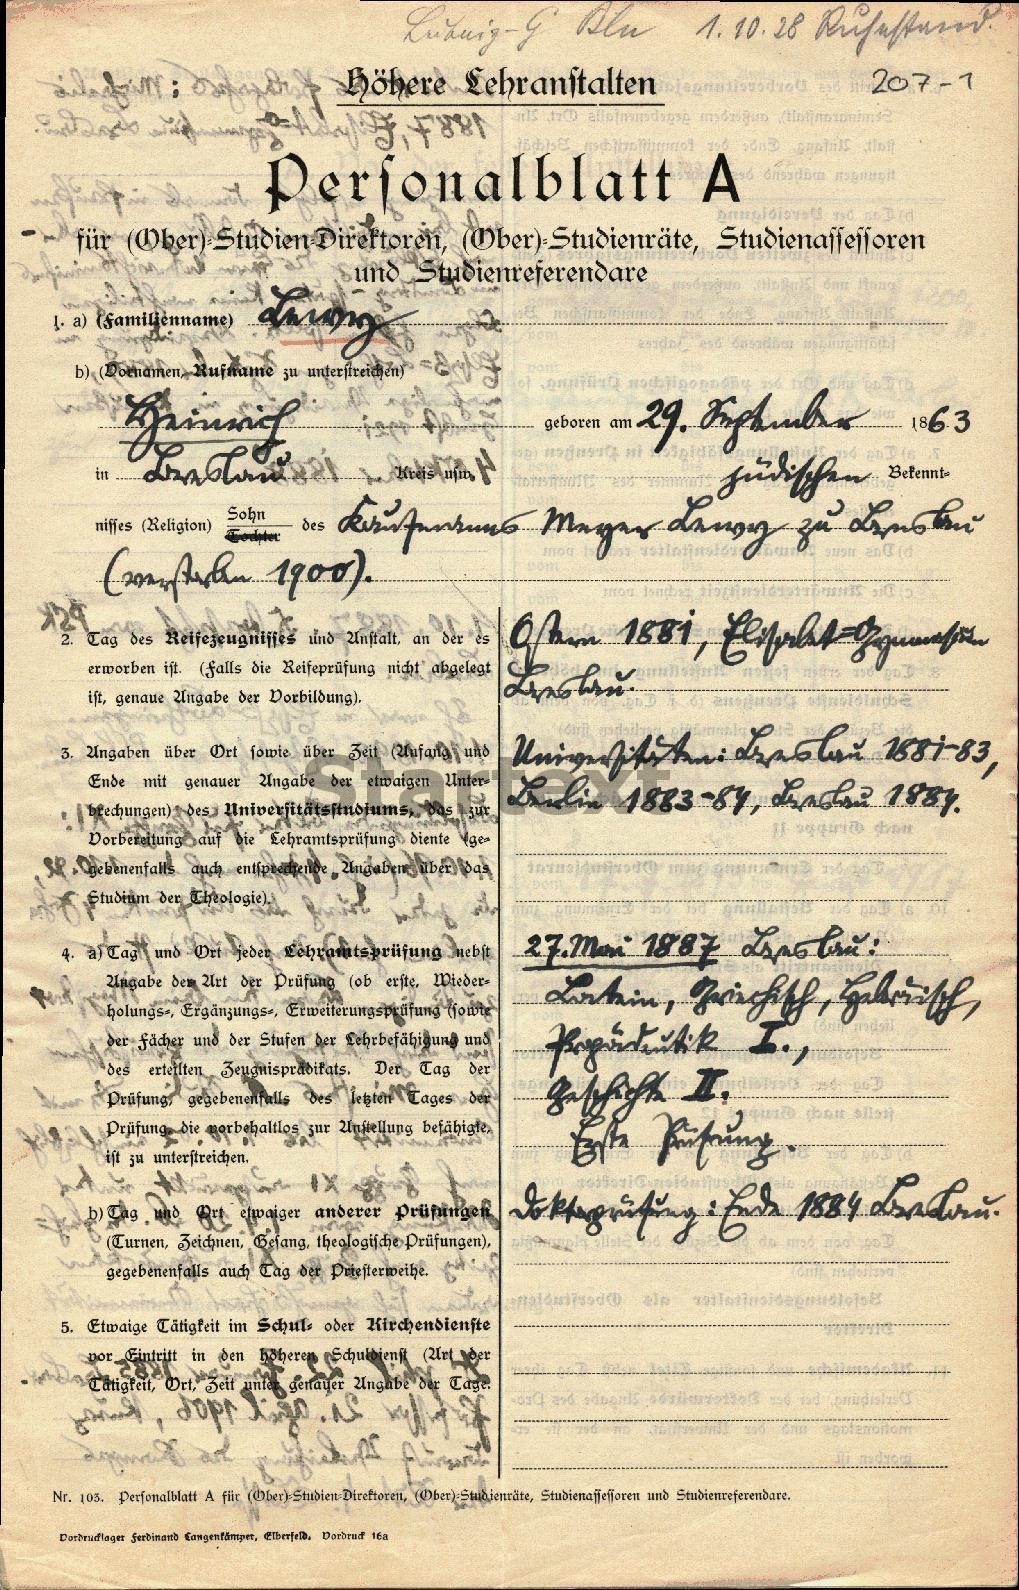 Ludwig-G Bln 1.10.28 Ruhestand.
Höhere Lehranstalten
207-1
Personalblatt A
für (Ober)-Studien-Direktoren, (Ober)-Studienräte, Studienassessoren
und Studienreferendare
1. a) (Familienname) Lewy
b) (Vornamen, Rufname zu unterstreichen)
Heinrich geboren am 29. September 1863
in Breslau Kreis usw. jüdischen Bekennt-
nisses (Religion) Sohn
Tochter des Kaufmanns Meyer Lewy zu Breslau
(verstorben 1900).
2. Tag des Reifezeugnisses und Anstalt, an der es
erworben ist. (Falls die Reifeprüfung nicht abgelegt
ist, genaue Angabe der Vorbildung).
Ostern 1881, Elisabet-Gymnasium
Breslau.
3. Angaben über Ort sowie über Zeit (Anfang und
Ende mit genauer Angabe der etwaigen Unter-
brechungen) des Universitätsstudiums, das zur
Vorbereitung auf die Lehramtsprüfung diente (ge-
gebenenfalls auch entsprechende Angaben über das
Studium der Theologie).
Universitäten: Breslau 1881-83,
Berlin 1883-84, Breslau 1884.
4. a) Tag und Ort jeder Lehramtsprüfung nebst
Angabe der Art der Prüfung (ob erste, Wieder-
holungs-, Ergänzungs-, Erweiterungsprüfung (sowie
der Fächer und der Stufen der Lehrbefähigung und
des erteilten Zeugnisprädikats. Der Tag der
Prüfung, gegebenenfalls des letzten Tages der
Prüfung, die vorbehaltlos zur Anstellung befähigte,
ist zu unterstreichen.
27. Mai 1887 Breslau:
Latein, Griechisch, Hebräisch,
Propädeutik I.,
Geschichte II.
Erste Prüfung.
b) Tag und Ort etwaiger anderer Prüfungen
(Turnen, Zeichnen, Gesang, theologische Prüfungen),
gegebenenfalls auch Tag der Priesterweihe.
Doktorprüfung: Ende 1884 Breslau.
5. Etwaige Tätigkeit im Schul- oder Kirchendienste
vor Eintritt in den höheren Schuldienst (Art der
Tätigkeit, Ort, Zeit unter genauer Angabe der Tage.
Nr. 103. Personalblatt A für (Ober)-Studien-Direktoren, (Ober)-Studienräte, Studienassessoren und Studienreferendare.
Vordrucklager Ferdinand Langenkämper, Elberfeld. Vordruck 16a